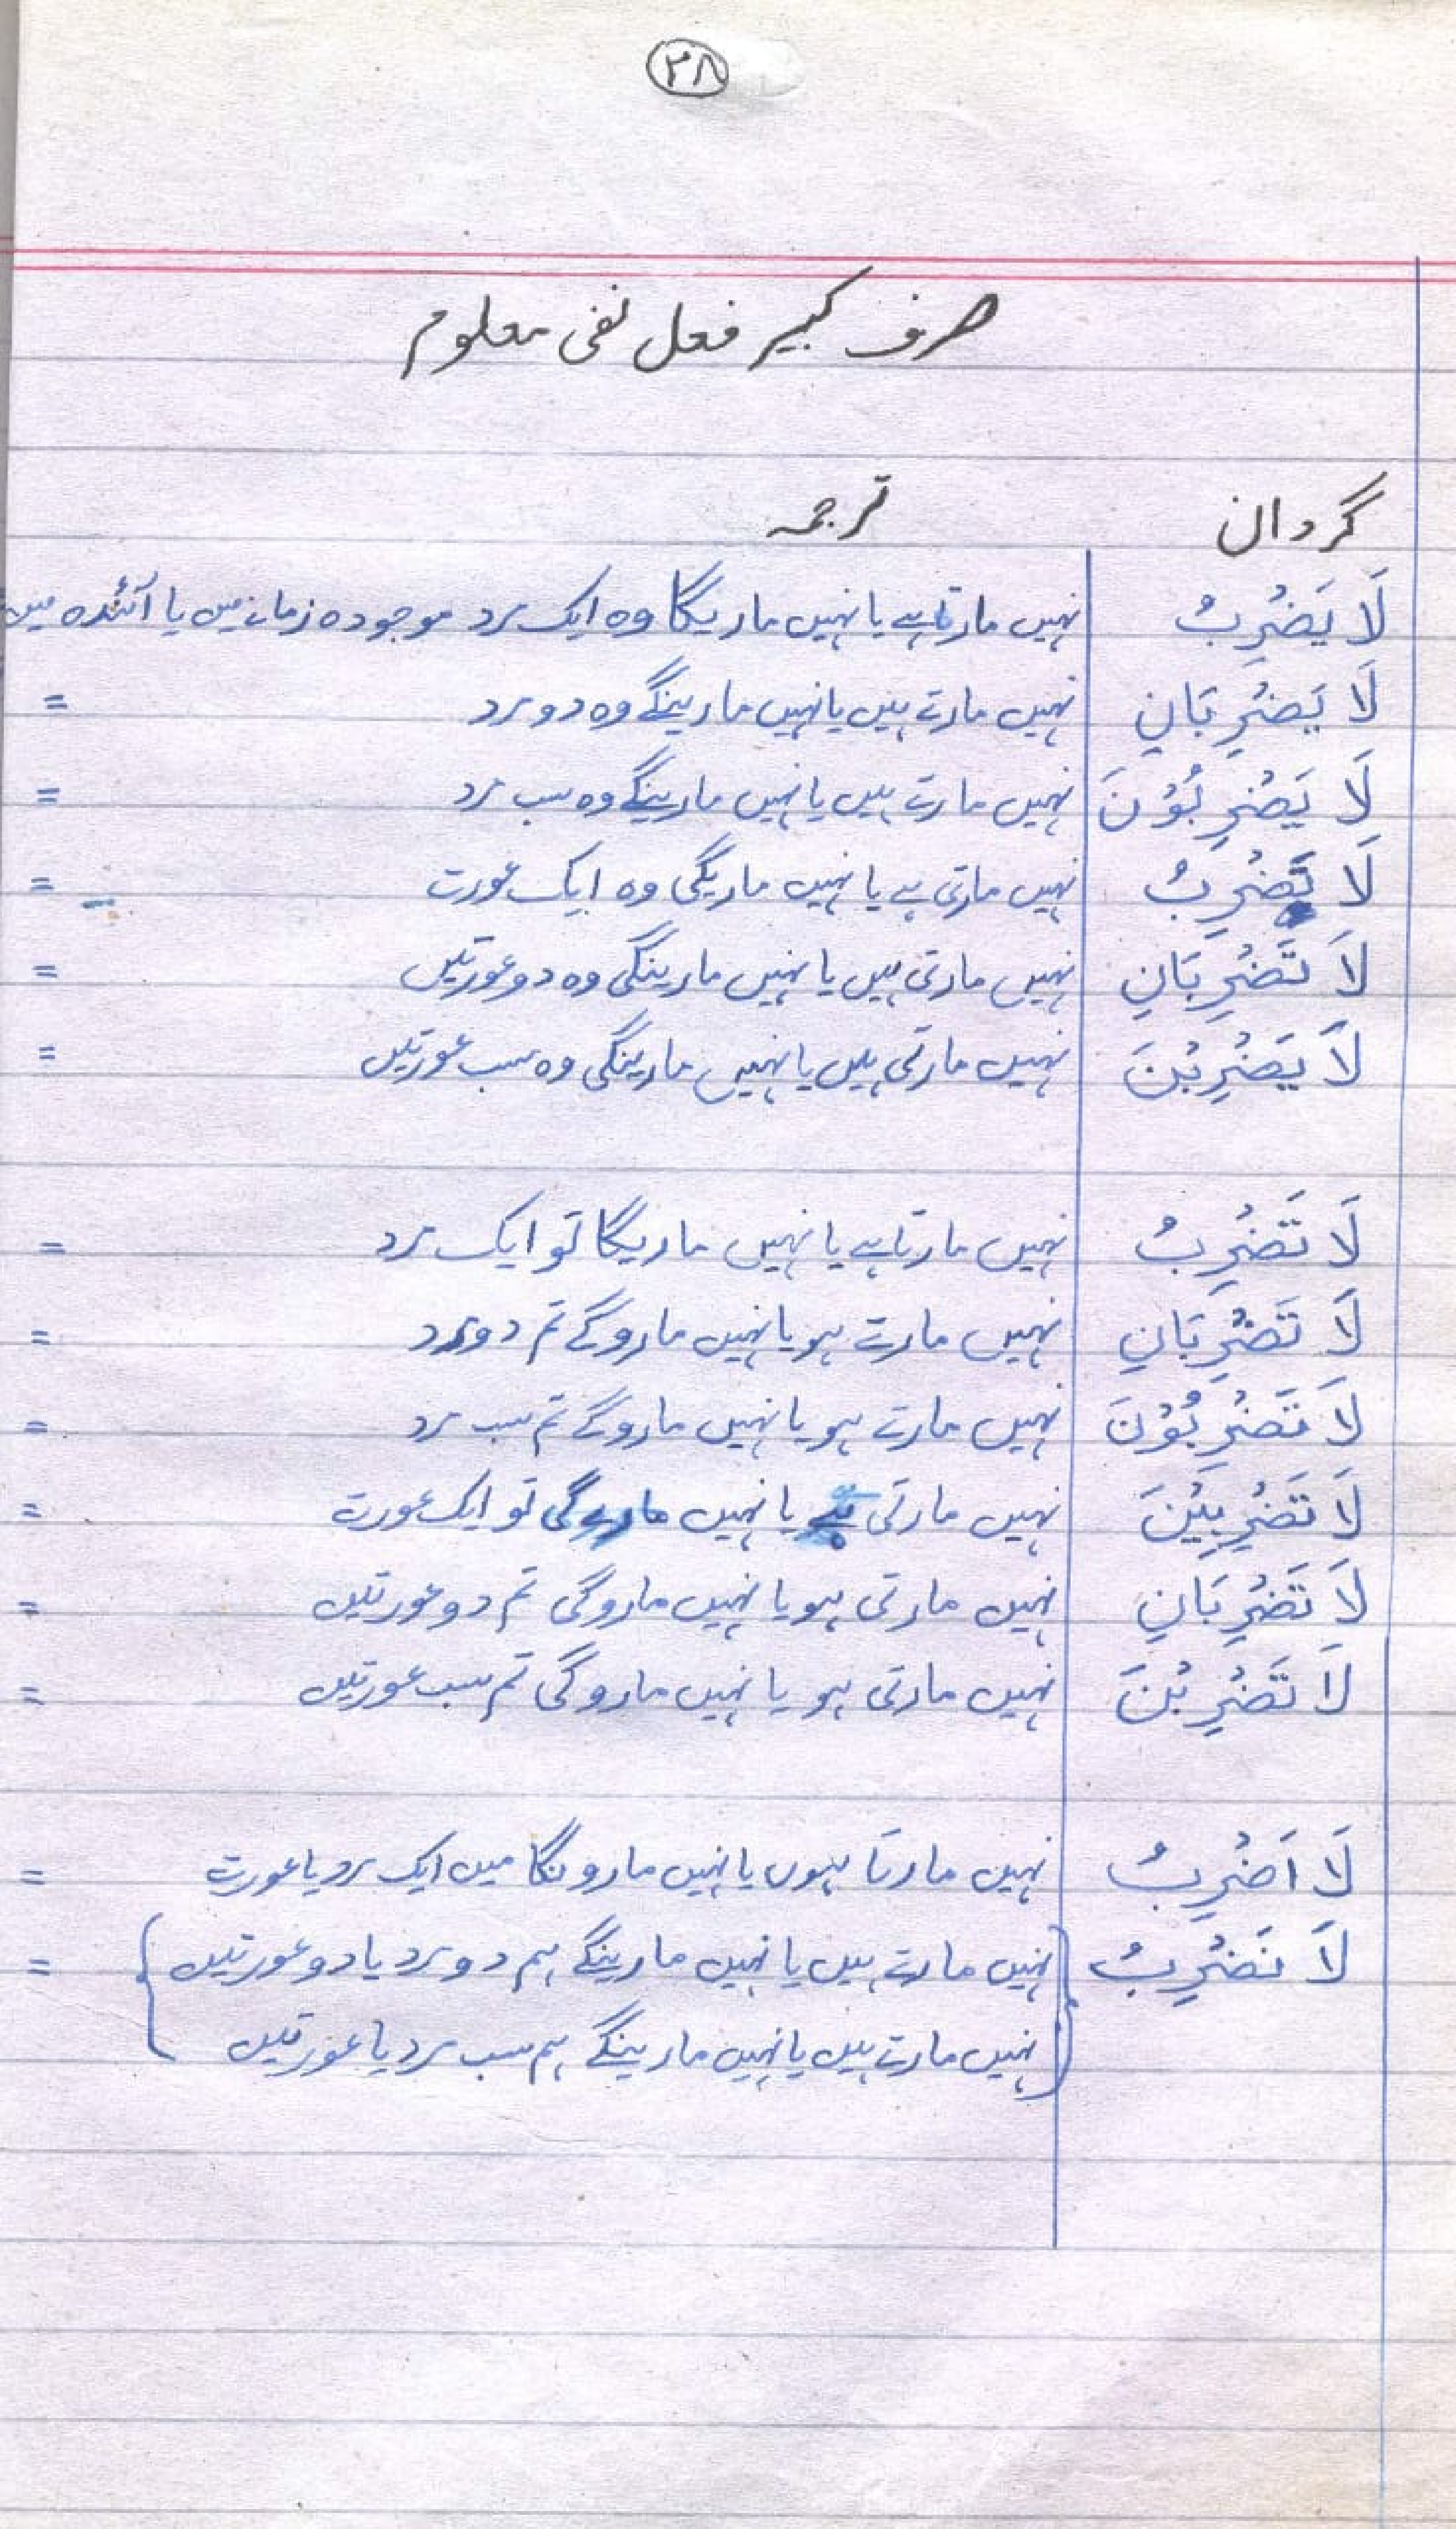 ۲۸
صرف کبیر فعل نفی معلوم
گردان ترجمہ
لَا یَضْرِبُ نہیں مارتا ہے یا نہیں ماریگا وہ ایک مرد موجودہ زمانہ میں یا آئندہ میں
لَا یَضْرِبَانِ نہیں مارتے ہیں یا نہیں مارینگے وہ دو مرد =
لَا یَضْرِبُوْنَ نہیں مارتے ہیں یا نہیں مارینگے وہ سب مرد =
لَا تَضْرِبُ نہیں مارتی ہے یا نہیں ماریگی وہ ایک عورت =
لَا تَضْرِبَانِ نہیں مارتی ہیں یا نہیں مارینگی وہ دو عورتیں =
لَا یَضْرِبْنَ نہیں مارتی ہیں یا نہیں مارینگی وہ سب عورتیں =
لَا تَضْرِبُ نہیں مارتا ہے یا نہیں ماریگا تو ایک مرد =
لَا تَضْرِبَانِ نہیں مارتے ہو یا نہیں ماروگے تم دو مرد =
لَا تَضْرِبُوْنَ نہیں مارتے ہو یا نہیں ماروگے تم سب مرد =
لَا تَضْرِبِیْنَ نہیں مارتی ہے یا نہیں مارےگی تو ایک عورت =
لَا تَضْرِبَانِ نہیں مارتی ہو یا نہیں ماروگی تم دو عورتیں =
لَا تَضْرِبْنَ نہیں مارتی ہو یا نہیں ماروگی تم سب عورتیں =
لَا اَضْرِبُ نہیں مارتا ہوں یا نہیں مارونگا میں ایک مرد یا عورت =
لَا نَضْرِبُ نہیں مارتے ہیں یا نہیں مارینگے ہم دو مرد یا دو عورتیں =
نہیں مارتے ہیں یا نہیں مارینگے ہم سب مرد یا عورتیں